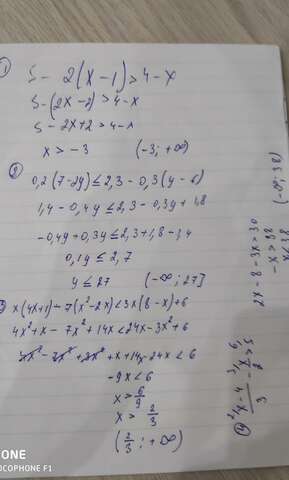 1
5 - 2(x-1) > 4 - x
5 - (2x-2) > 4 - x
5 - 2x + 2 > 4 - x
x > -3 (-3; +∞)
2
0,2(7-2y) ≤ 2,3 - 0,3(y-6)
1,4 - 0,4y ≤ 2,3 - 0,3y + 1,8
-0,4y + 0,3y ≤ 2,3 + 1,8 - 1,4
0,1y ≤ 2,7
y ≤ 27 (-∞; 27]
3 x(4x+1) - 7(x²-2x) < 3x(8-x)+6
4x² + x - 7x² + 14x < 24x - 3x² + 6
4x² - 7x² + 3x² + x + 14x - 24x < 6
-9x < 6
x > 6/9
x > 2/3
(2/3; +∞)
4 2\ x-4 / 3 - 3\ x / 2 > 5 6\
2x - 8 - 3x > 30
-x > 38
x < 38
(-∞; 38)
REDMI NOTE 8 PRO